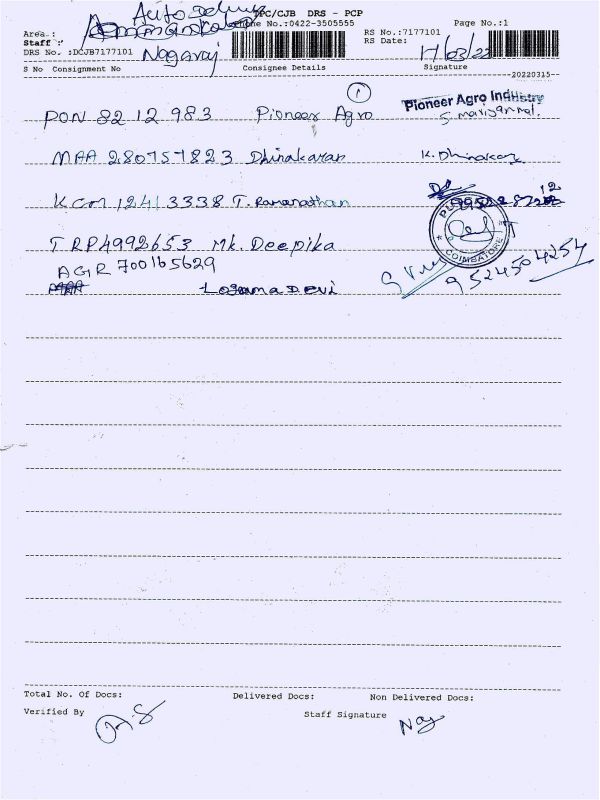 Auto Delivery
TPC/CJB DRS - PCP
Page No.:1
Area :
Phone No.:0422-3505555
RS No.:7177101
Staff :
RS Date:
DRS No. :DCJB7177101
Nagaraj
17/03/22
S No Consignment No Consignee Details Signature
--20220315--
1
PON 82 12 983 Pioneer Agro Pioneer Agro Industry
S. mariyammal.
MAA 280757823 Dhinakaran K. Dhinakaran
KCM 12413338 T. Ramanathan
TRP4992653 Mk. Deepika
COIMBATORE
AGR 700165629
9524504254
Devi
Total No. Of Docs: Delivered Docs: Non Delivered Docs:
Verified By
Staff Signature
Naj